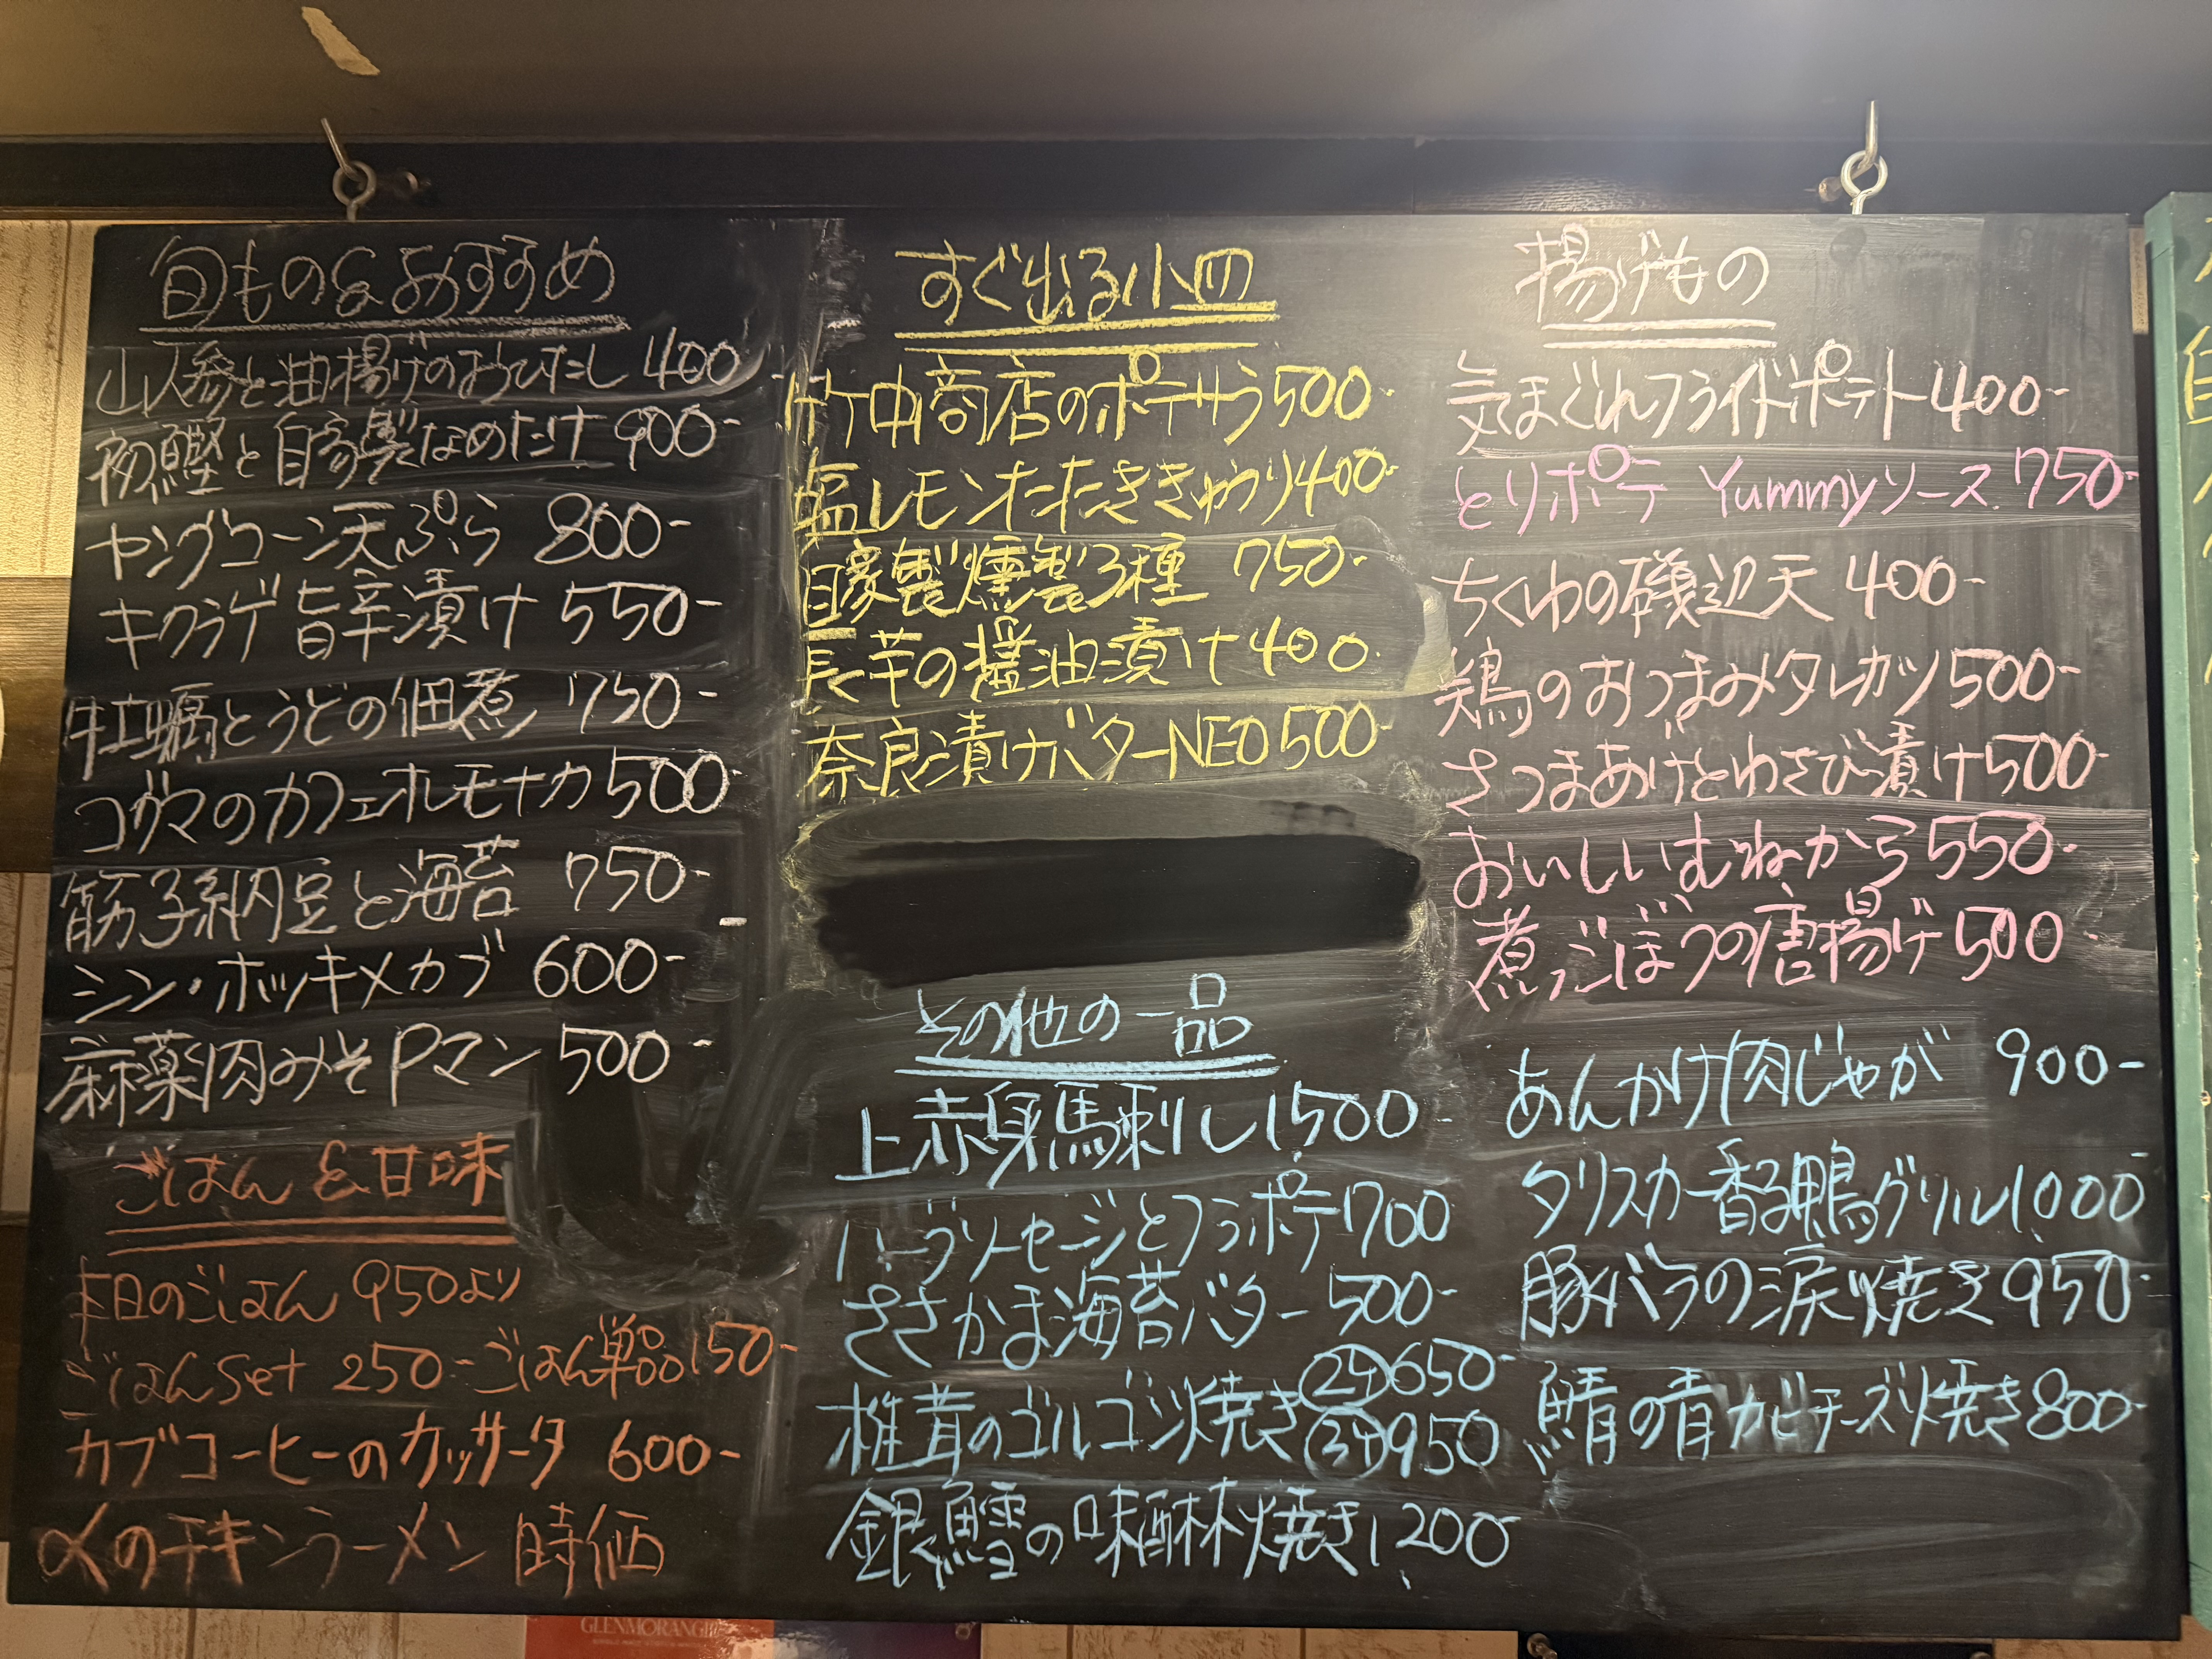 旬もの&おすすめ
山人参と油揚げのおひたし 400
初鰹と自家製なめたけ 900-
ヤングコーン天ぷら 800-
キクラゲ旨辛漬け 550-
牡蠣とうどの佃煮 750-
コグマのカフェオレモナカ 500-
筋子納豆と海苔 750-
シン・ホッキメカブ 600-
麻薬肉みそPマン 500-
ごはん&甘味
本日のごはん 950より
ごはんset 250-ごはん単品150-
カブコーヒーのカッサータ 600-
〆のチキンラーメン 時価
すぐ出る小皿
竹中商店のポテサラ500-
塩レモンたたききゅうり400-
自家製燻製3種 750-
長芋の醤油漬け400.
奈良漬けバターNEO500-
その他の一品
上赤身馬刺し1,500-
ハーブソーセージとフラポテ700
ささかま海苔バター 500-
椎茸のゴルゴン焼き ②ケ650-
③ケ950
銀鱈の味醂焼き1,200-
揚げもの
気まぐれフライドポテト400-
とりポテ Yummyソース 750-
ちくわの磯辺天 400-
鶏のおつまみタレカツ500-
さつまあげとわさび漬け500-
おいしいむねから550-
煮ごぼうの唐揚げ500
あんかけ肉じゃが 900-
タリスカー香る鴨グリル1,000-
豚バラの涙焼き950-
鯖の青カビチーズ焼き800-
GLENMORANGIE